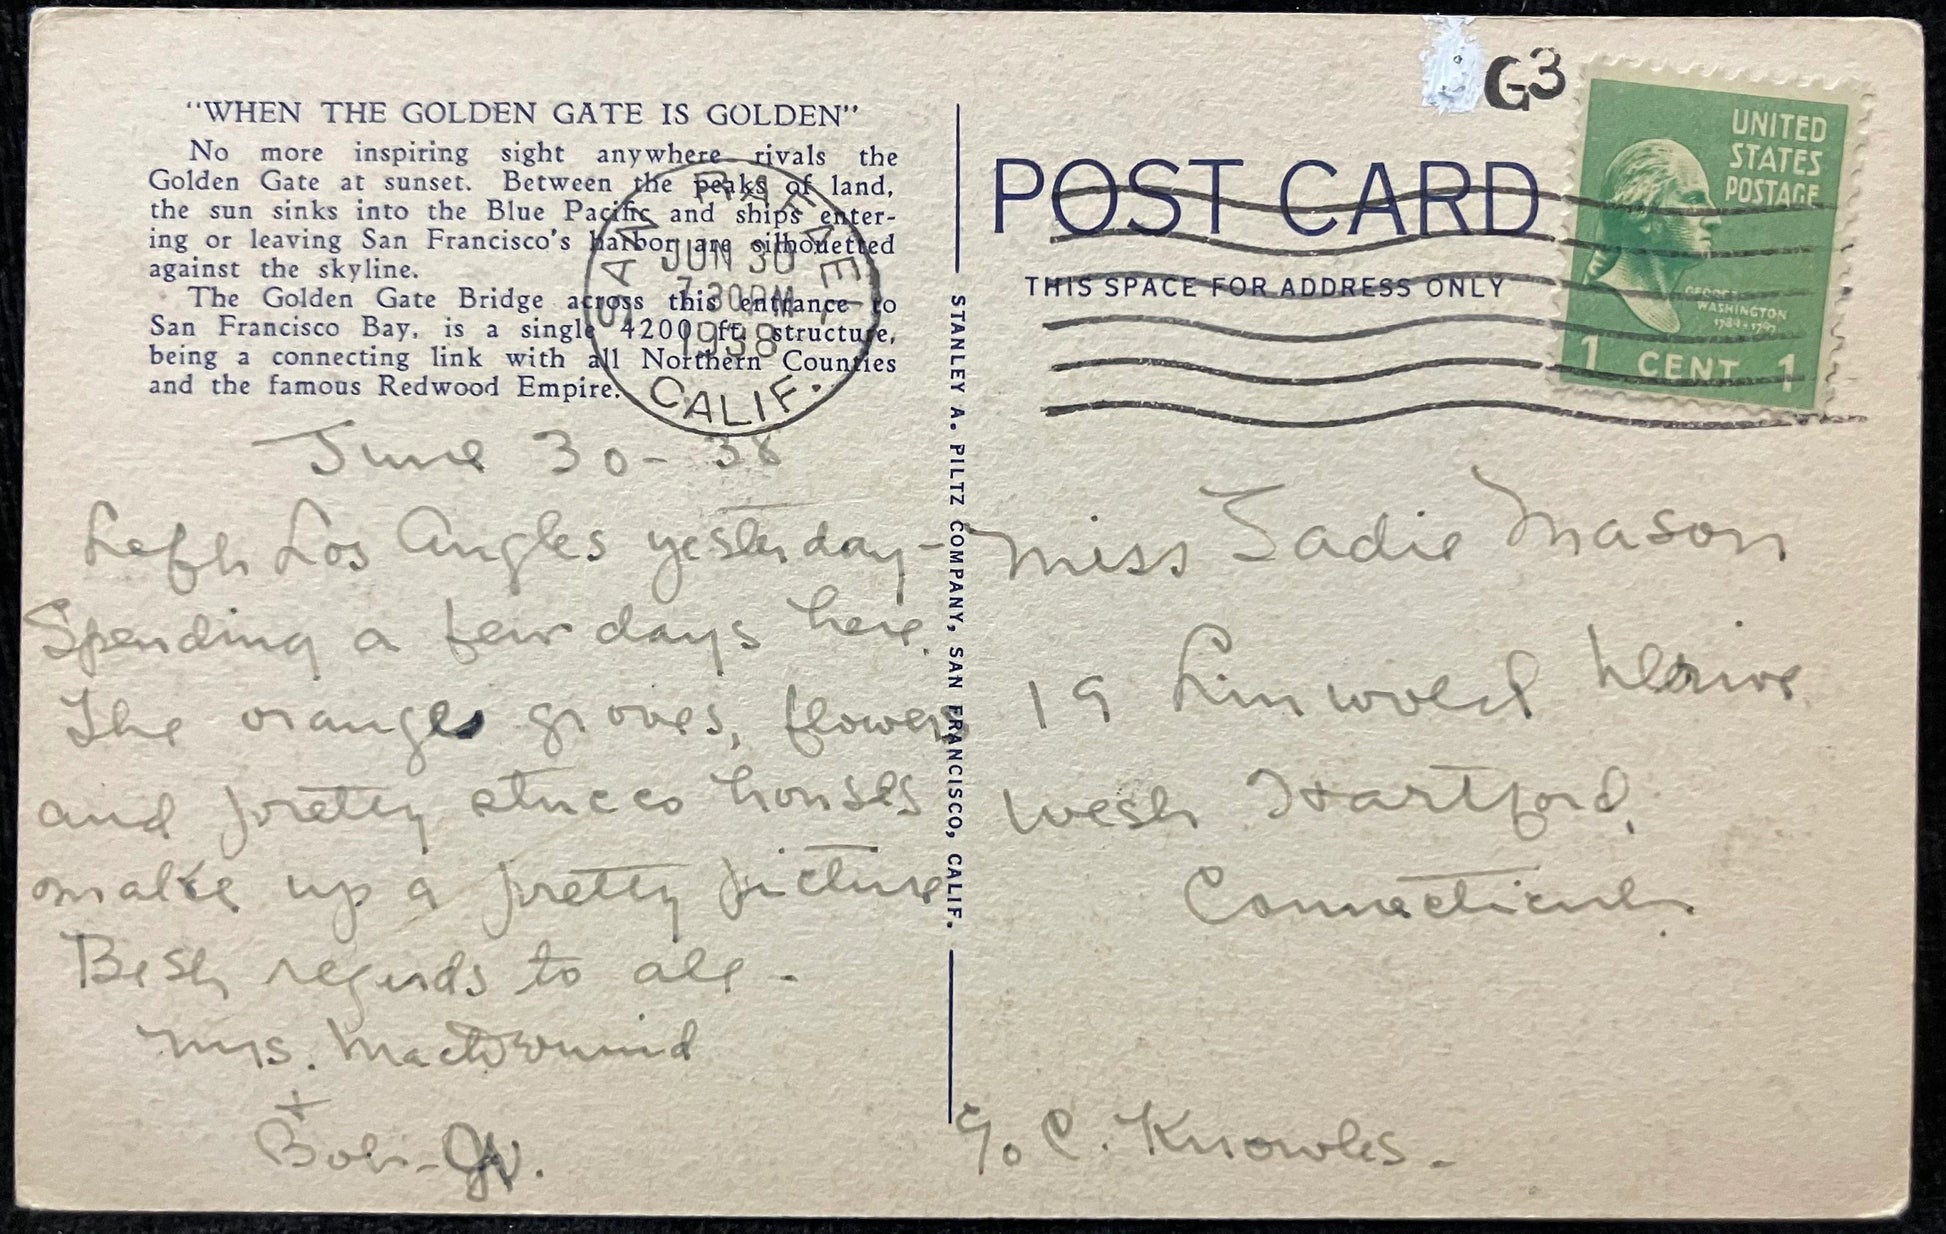 "WHEN THE GOLDEN GATE IS GOLDEN"
No more inspiring sight anywhere rivals the
Golden Gate at sunset. Between the peaks of land,
the sun sinks into the Blue Pacific and ships enter-
ing or leaving San Francisco's harbor are silhouetted
against the skyline.
The Golden Gate Bridge across this entrance to
San Francisco Bay, is a single 4200 ft. structure,
being a connecting link with all Northern Counties
and the famous Redwood Empire.
SAN RAFAEL
JUN 30
7:30 PM
1938
CALIF.
June 30-38
Left Los Angles yesterday-
Spending a few days here.
The orange groves, flowers
and pretty stucco houses
make up a pretty picture
Best regards to all -
Mrs.
+
Bob-Jr.
STANLEY A. PILTZ COMPANY, SAN FRANCISCO, CALIF.
G3
POST CARD
THIS SPACE FOR ADDRESS ONLY
UNITED
STATES
POSTAGE
GEORGE
WASHINGTON
1789-1797
1 CENT 1
Miss Sadie Mason
19 Linwold Drive
West Hartford,
Connecticut.
c/o C. Knowles.